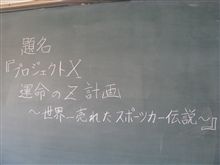 題名
『プロジェクトX
運命のZ計画
〜世界一売れたスポーツカー伝説〜』